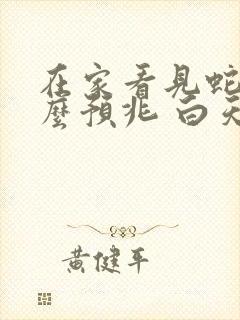 在家看見蛇
麼預兆 白天
黃健平